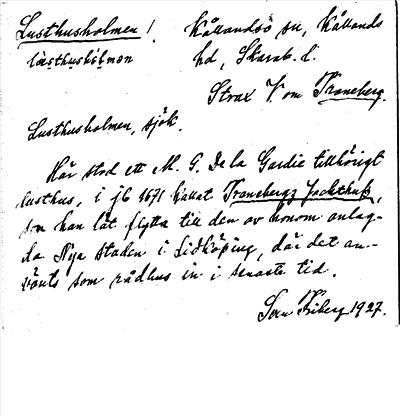 Lusthusholmen! Kållandsö sn, Kållands
lùsthushòlmen hd, Skarab. l.
Strax V. om Traneberg.
Lusthusholmen, sjök.
Här stod ett M. G. De la Gardie tillhörigt
lusthus, i jb 1671 kallat Tranebergz Jachthuß,
som han lät flytta till den av honom anlag-
da Nya staden i Lidköping, där det an-
vänts som rådhus in i senaste tid.
Sven Friberg 1927.